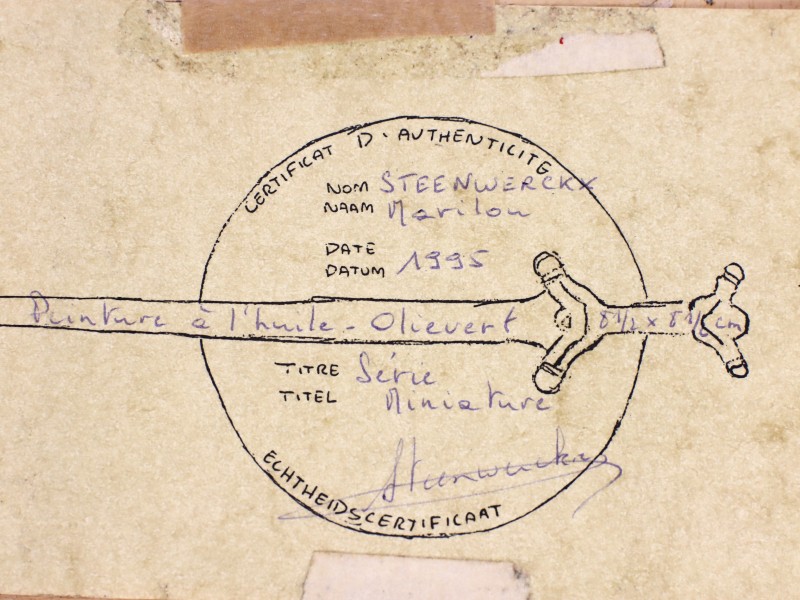 CERTIFICAT D'AUTHENTICITE
NOM STEENWERCKX
NAAM Marilou
DATE
DATUM 1995
Peinture à l'huile - Olievert 8 1/2 x 8 1/2 cm
TITRE Série
TITEL Miniature
Steenwerckx
ECHTHEIDSCERTIFICAAT